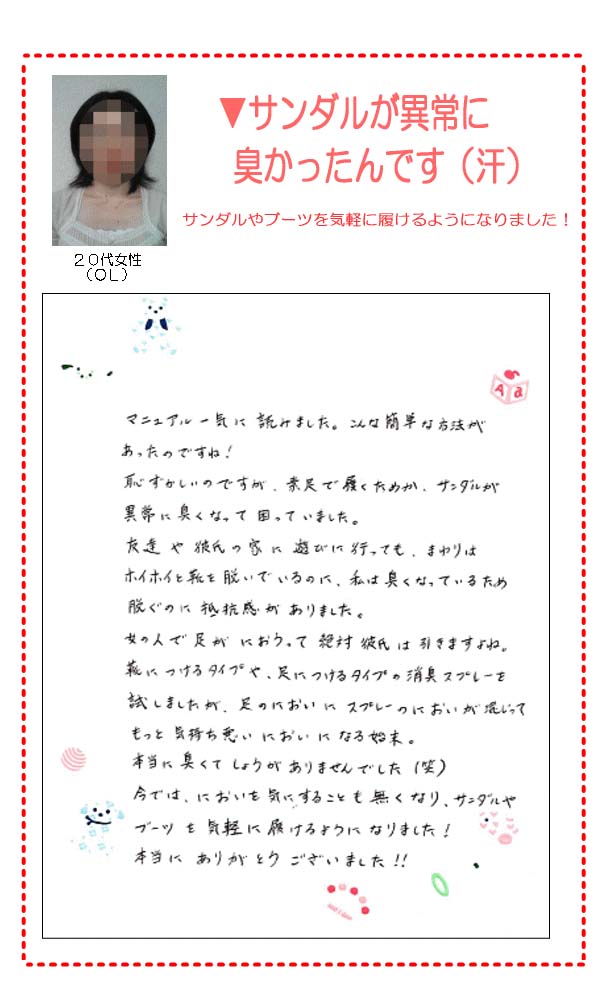 ▼サンダルが異常に
臭かったんです（汗）
サンダルやブーツを気軽に履けるようになりました！
２０代女性
（ＯＬ）
A a
マニュアル一気に読みました。こんな簡単な方法が
あったのですね！
恥ずかしいのですが、素足で履くためか、サンダルが
異常に臭くなって困っていました。
友達や彼氏の家に遊びに行っても、まわりは
ホイホイと靴を脱いでいるのに、私は臭くなっているため
脱ぐのに抵抗感がありました。
女の人で足がにおうって絶対彼氏は引きますよね。
靴につけるタイプや、足につけるタイプの消臭スプレーを
試しましたが、足のにおいにスプレーのにおいが混じって
もっと気持ち悪いにおいになる始末。
本当に臭くてしょうがありませんでした（笑）
今では、においを気にすることも無くなり、サンダルや
ブーツを気軽に履けるようになりました！
本当にありがとうございました!!